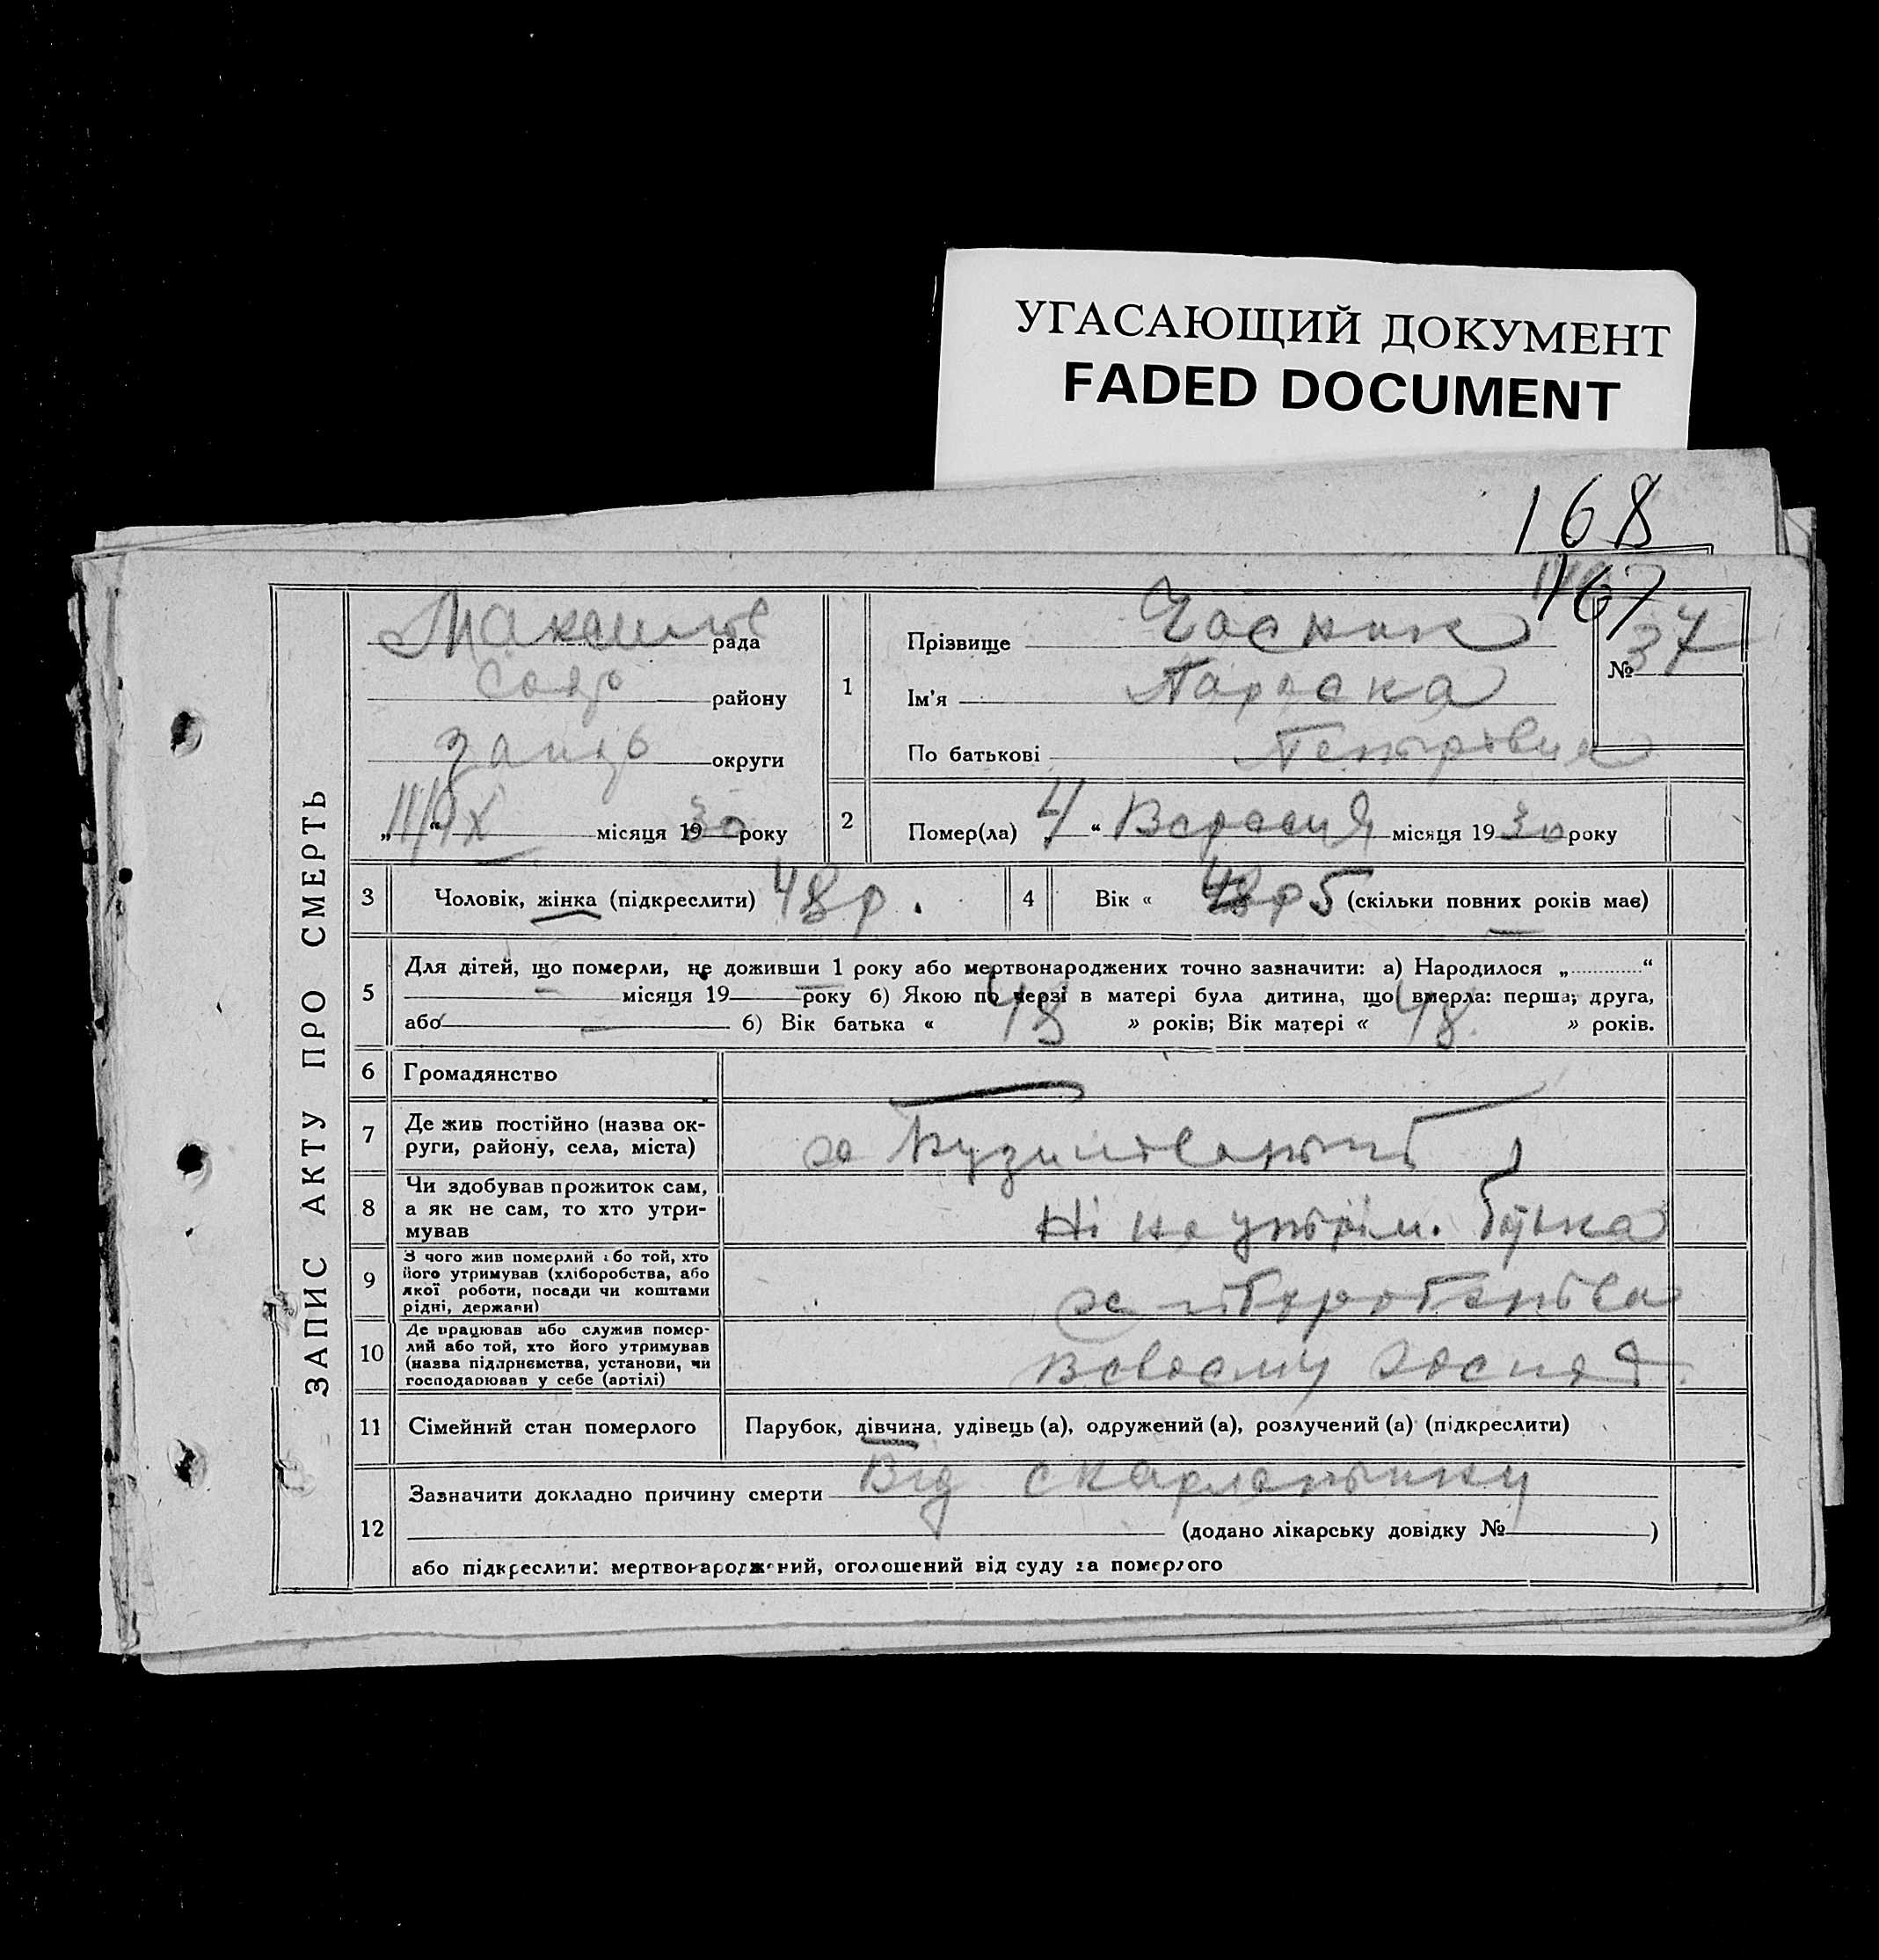 УГАСАЮЩИЙ ДОКУМЕНТ
FADED DOCUMENT
168
167
ЗАПИС АКТУ ПРО СМЕРТЬ
рада
району
Запор округи
„11“ IX місяця 1930 року
1
Прізвище Часник
Ім'я Параска
По батькові Петровна
№ 37
2 Помер(ла) „4“ Вересня місяця 1930 року
3 Чоловік, жінка (підкреслити) 48 р.
4 Вік « 5 (скільки повних років має)
5 Для дітей, що померли, не доживши 1 року або мертвонароджених точно зазначити: а) Народилося „ “
місяця 19 року б) Якою по черзі в матері була дитина, що вмерла: перша, друга,
або б) Вік батька « 48 » років; Вік матері « 48 » років.
6 Громадянство
7 Де жив постійно (назва ок-
руги, району, села, міста)
8 Чи здобував прожиток сам,
а як не сам, то хто утри-
мував
Ні на утрім. батька
9 З чого жив померлий або той, хто
його утримував (хліборобства, або
якої роботи, посади чи коштами
рідні, держави)
хліборобства
10 Де працював або служив помер-
лий або той, хто його утримував
(назва підприємства, установи, чи
господарював у себе (артілі)
В своему госпад.
11 Сімейний стан померлого Парубок, дівчина, удівець (а), одружений (а), розлучений (а) (підкреслити)
12 Зазначити докладно причину смерти Від скарлатини
(додано лікарську довідку № )
або підкреслити: мертвонароджений, оголошений від суду за померлого